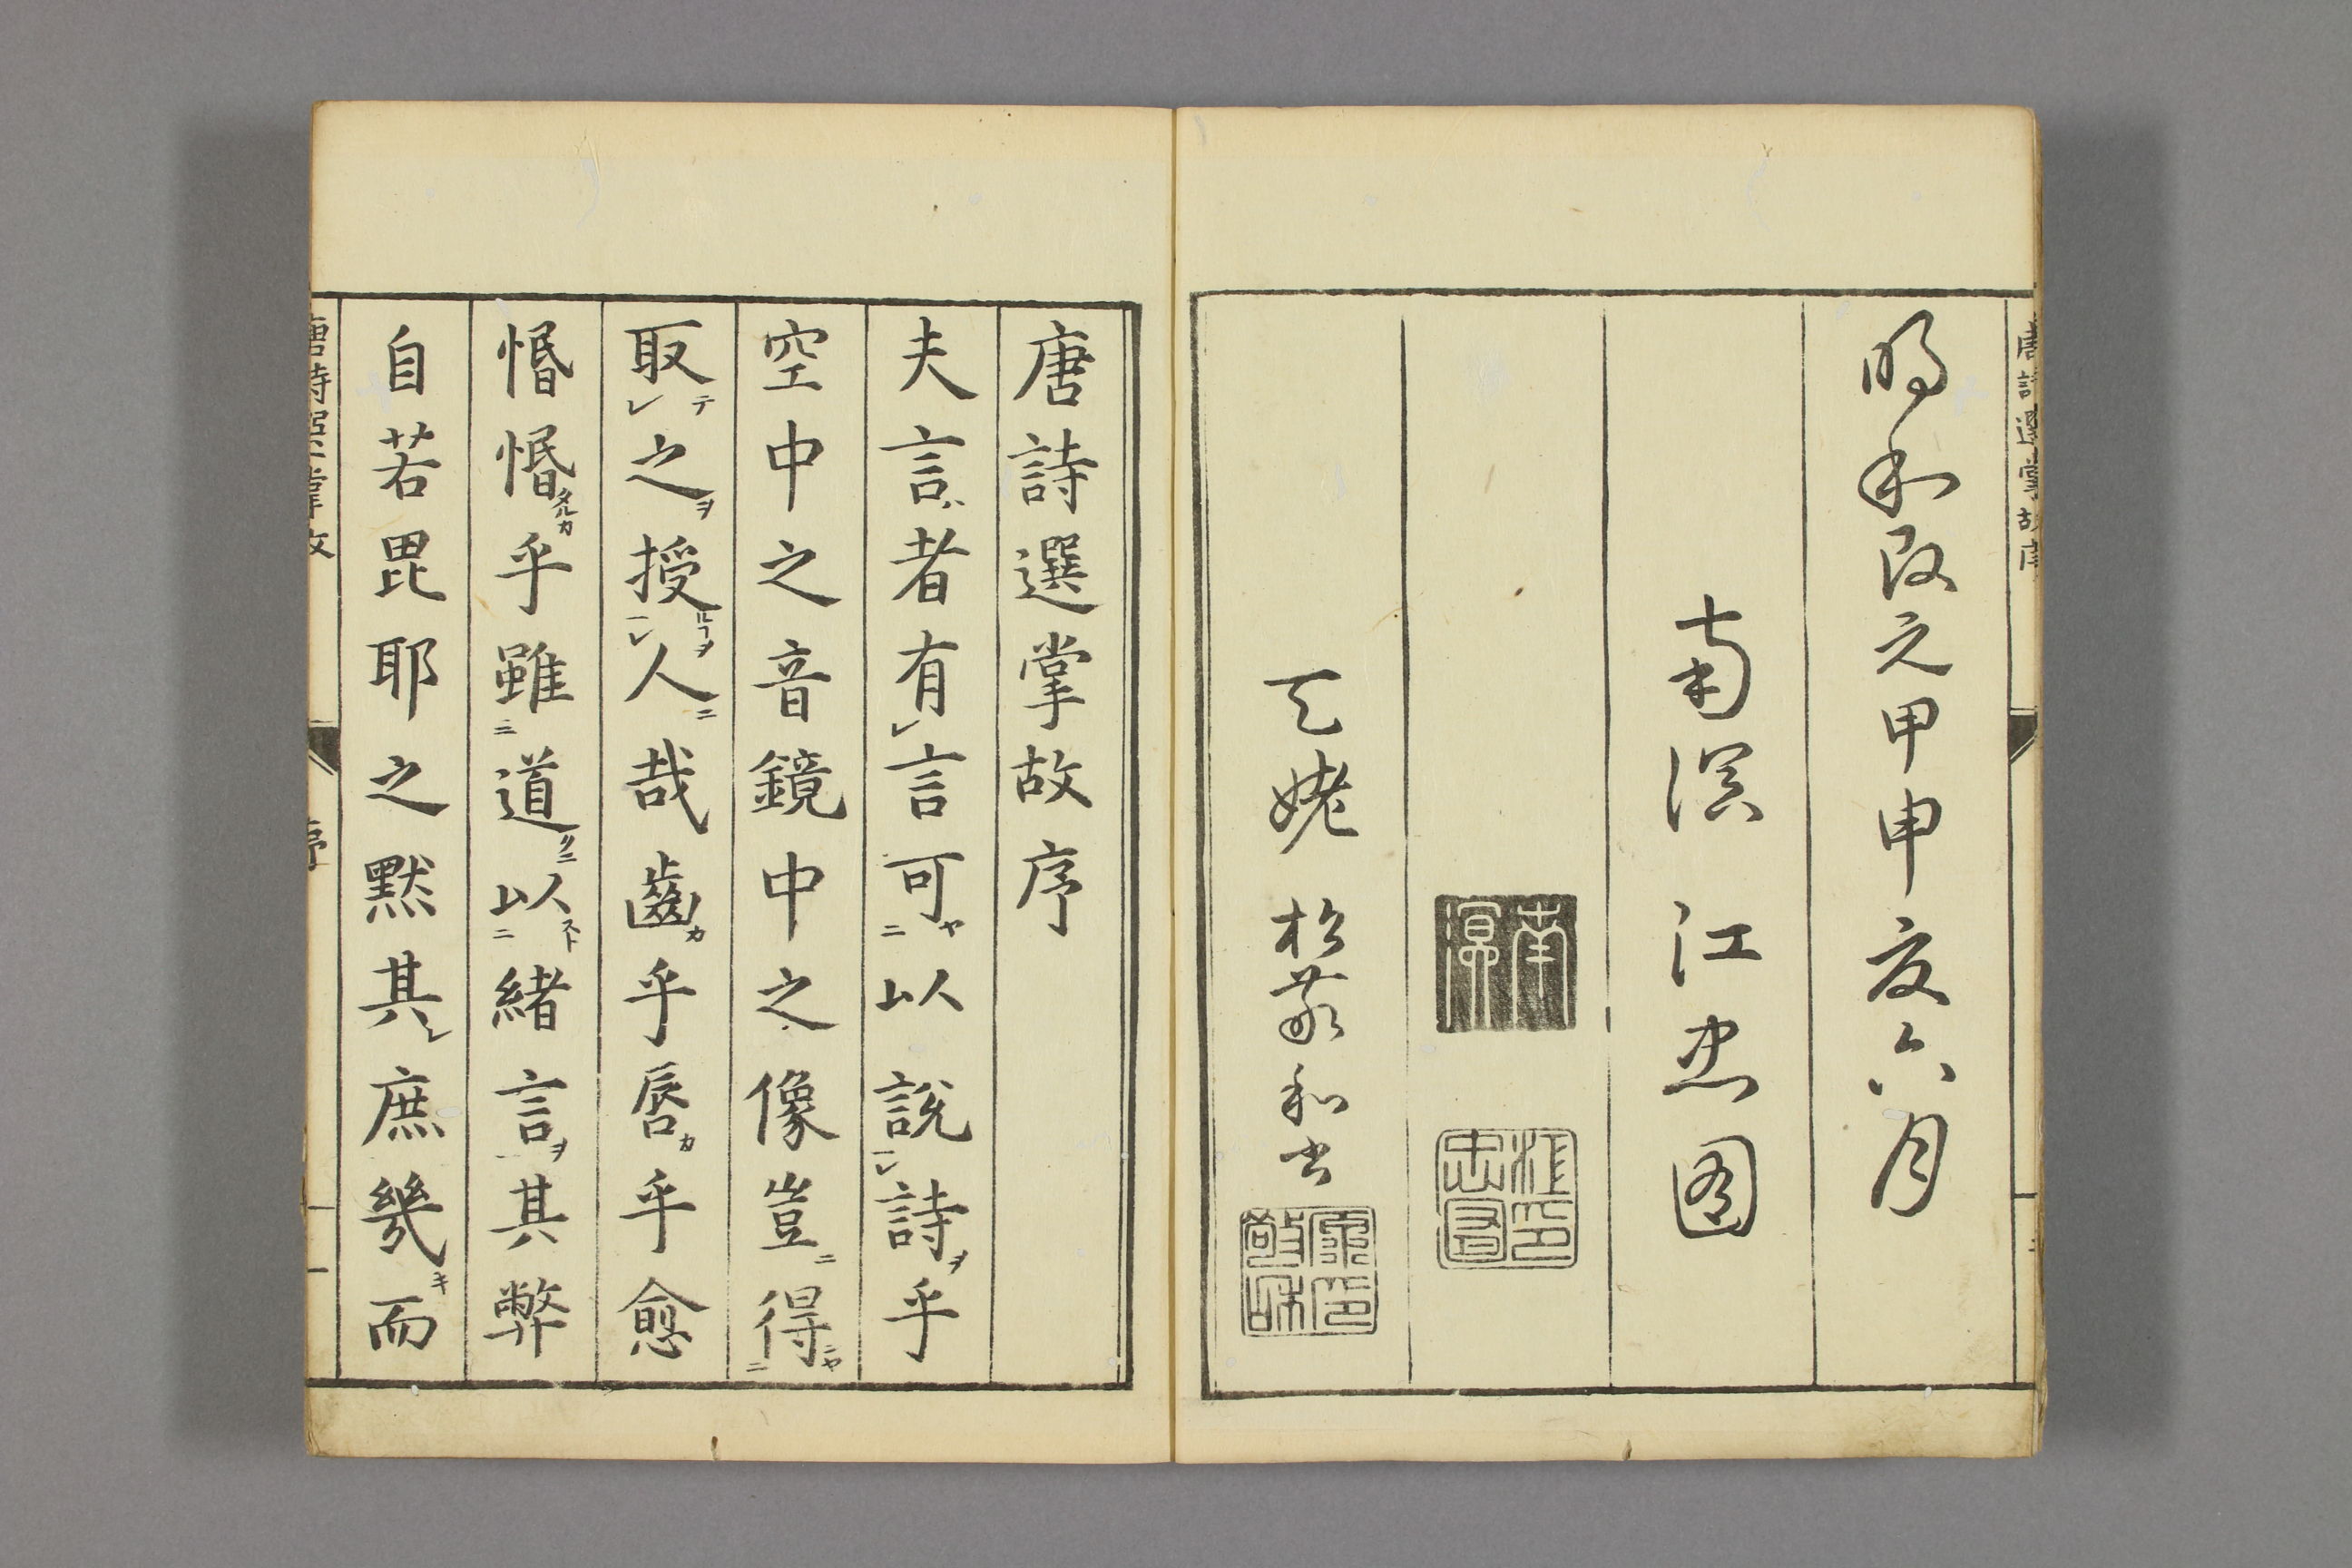 唐詩選掌故序
明和改元甲申夏六月
南溟江忠囿
南溟
天姥 松敬和書
唐詩選掌故序
夫言者有言可以說詩乎
空中之音鏡中之像豈得
取之授人哉齒乎唇乎愈
惛惛乎雖道以緒言其弊
自若毘耶之黙其庶幾而
唐詩選掌故 序